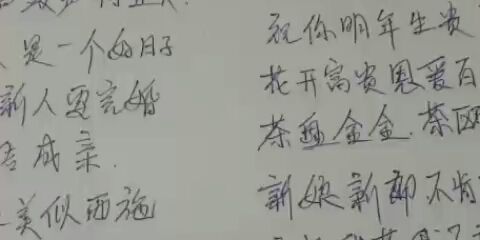 是一个好日子
新人要完婚
吉成亲.
美似西施
祝你明年生贵
花开富贵恩爱百
茶盘金金.茶
新娘新郎不肯